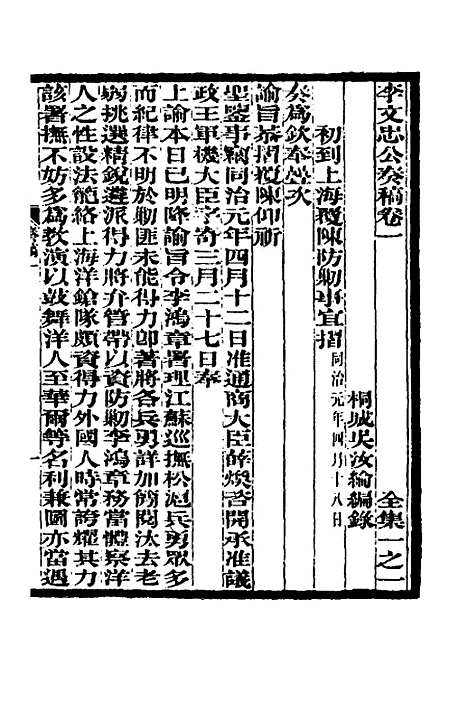 李文忠公奏稿卷一 全集一之一
桐城吳汝綸編錄
初到上海覆陳防勦事宜摺 同治元年四月十八日
奏爲欽奉疊次
諭旨恭摺覆陳仰祈
聖鑒事竊同治元年四月十二日准通商大臣薛煥咨開承准議
政王軍機大臣字寄三月二十七日奉
上諭本日已明降諭旨令李鴻章署理江蘇巡撫松滬兵勇眾多
而紀律不明於勦匪未能得力卽著將各兵勇詳加簡閱汰去老
弱挑選精銳遴派得力將弁管帶以資防勦李鴻章務當體察洋
人之性設法籠絡上海洋鎗隊頗資得力外國人時常誇耀其力
該署撫不妨多爲敎演以鼓舞洋人至華爾等名利兼圖亦當遇
奏稿一
一